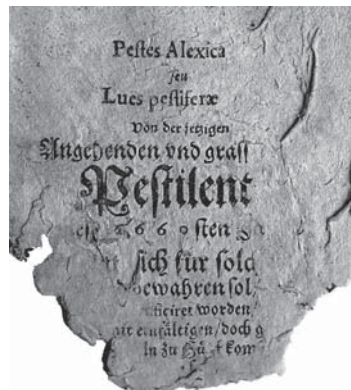 Pestes Alexica
seu
Lues pestiferæ
Von der jetzigen
Angehenden vnd grass
Pestilent
6 6 sten
sich für solc
bewahren sol
ficiret worden
einfältigen/doch g
ln zu Hülf kom